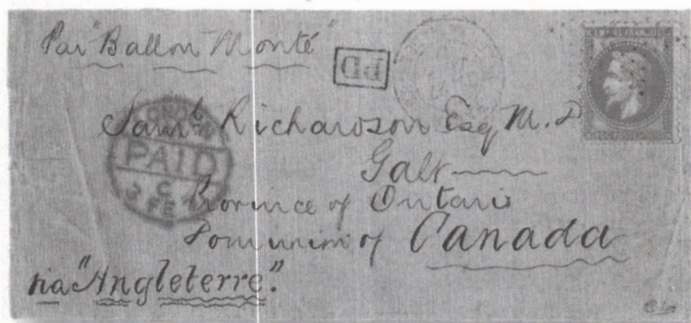 Par "Ballon Monté"
PD
Saml Richardson Esq M.D
PAID
Galt
C
3 FE
Province of Ontario
Dominion of Canada
via "Angleterre".